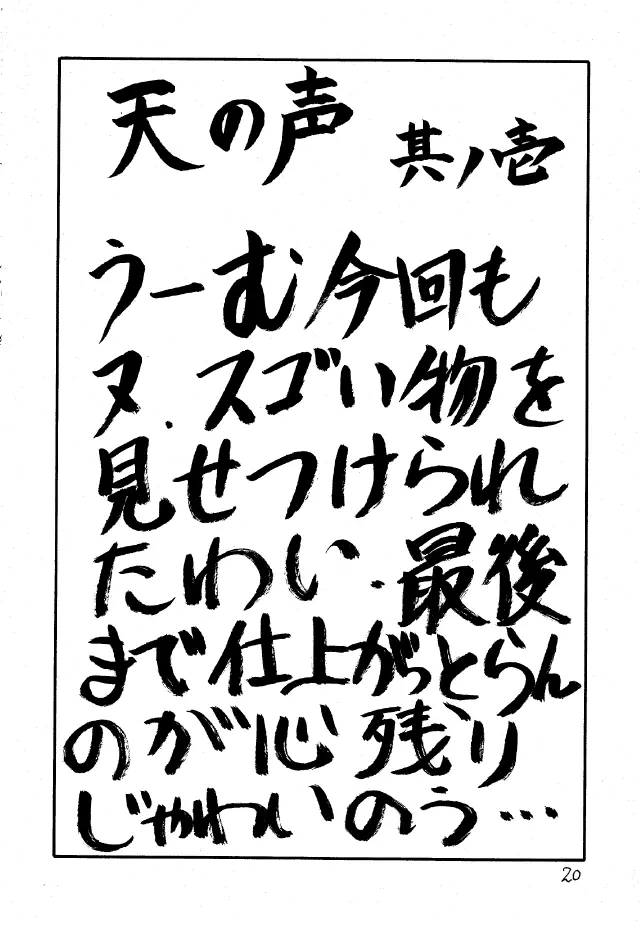 天の声 其ノ壱
うーむ今回も
ヌ.スゴい物を
見せつけられ
たわい.最後
まで仕上がっとらん
のが心残り
じゃわいのう…
20